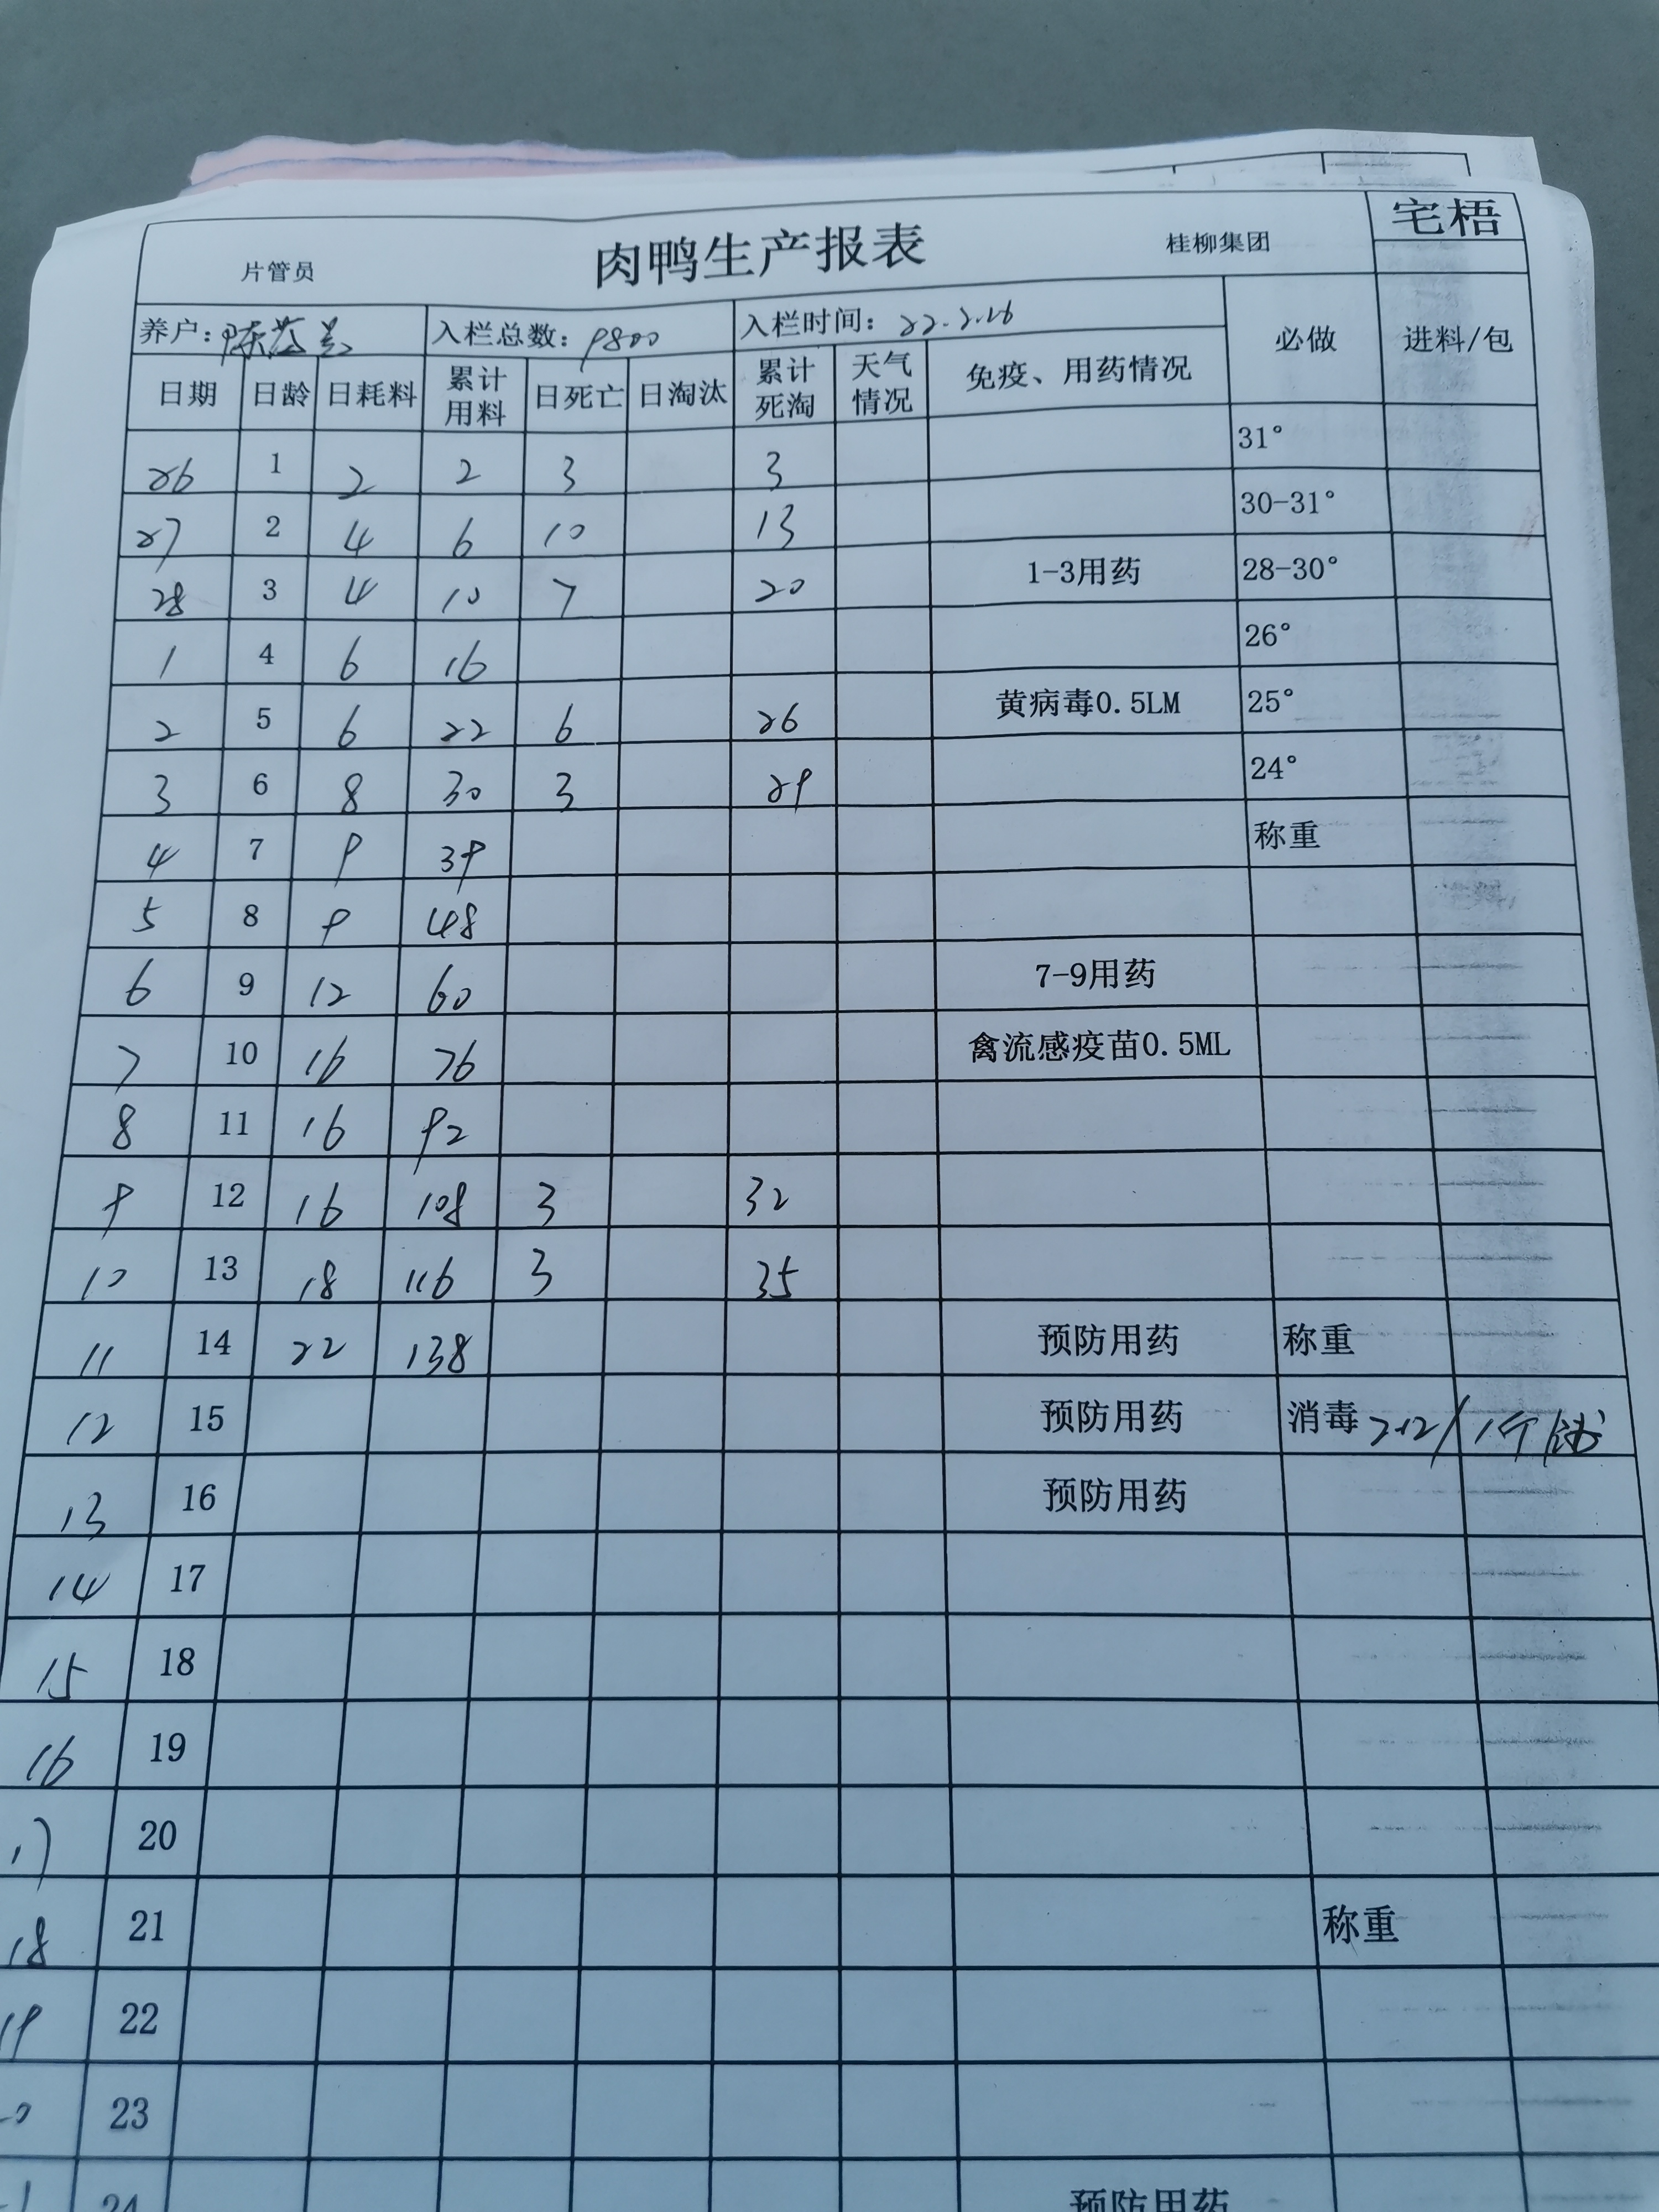 宅梧
片管员 肉鸭生产报表 桂柳集团
养户: 入栏总数: 9800 入栏时间: 22.2.26 必做 进料/包
日期 日龄 日耗料 累计用料 日死亡 日淘汰 累计死淘 天气情况 免疫、用药情况
26 1 2 2 3 3 31°
27 2 4 6 10 13 30-31°
28 3 4 10 7 20 1-3用药 28-30°
1 4 6 16 26°
2 5 6 22 6 26 黄病毒0.5LM 25°
3 6 8 30 3 29 24°
4 7 9 39 称重
5 8 9 48
6 9 12 60 7-9用药
7 10 16 76 禽流感疫苗0.5ML
8 11 16 92
9 12 16 108 3 32
10 13 18 116 3 35
11 14 22 138 预防用药 称重
12 15 预防用药 消毒
13 16 预防用药
14 17
15 18
16 19
17 20
18 21 称重
19 22
23
24 预防用药